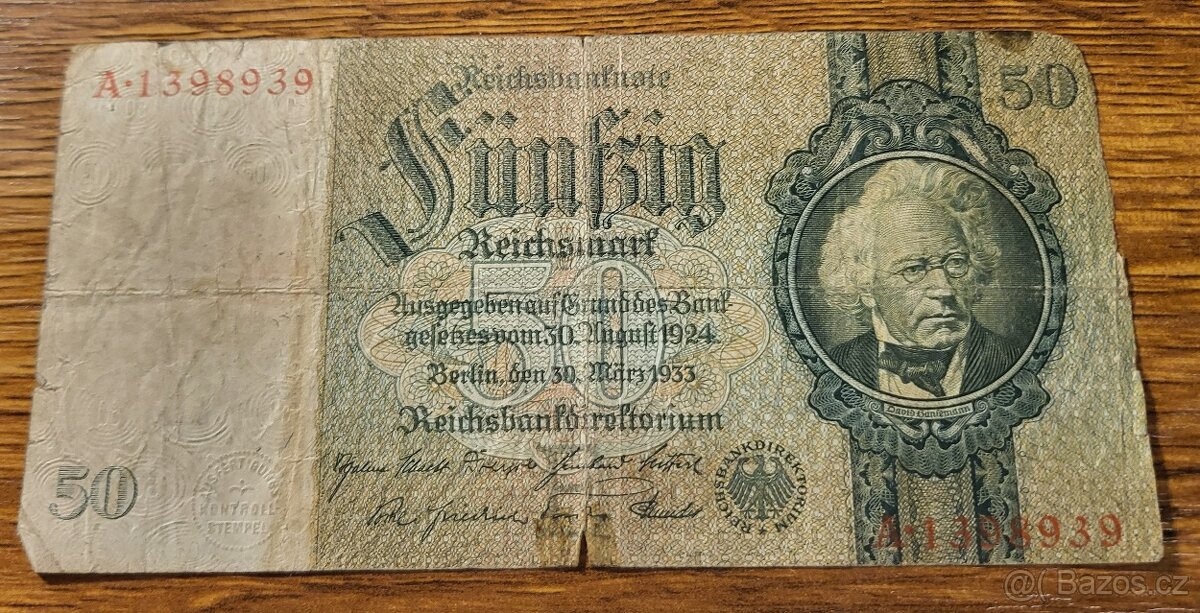 A·1398939
Reichsbanknote
50
Fünfzig
Reichsmark
50
Ausgegeben auf Grund des Bank
gesetzes vom 30. August 1924
Berlin, den 30. März 1933
Reichsbankdirektorium
David Hansemann
50
KONTROLL
STEMPEL
REICHSBANKDIREKTORIUM
A·1398939
Bazos.cz